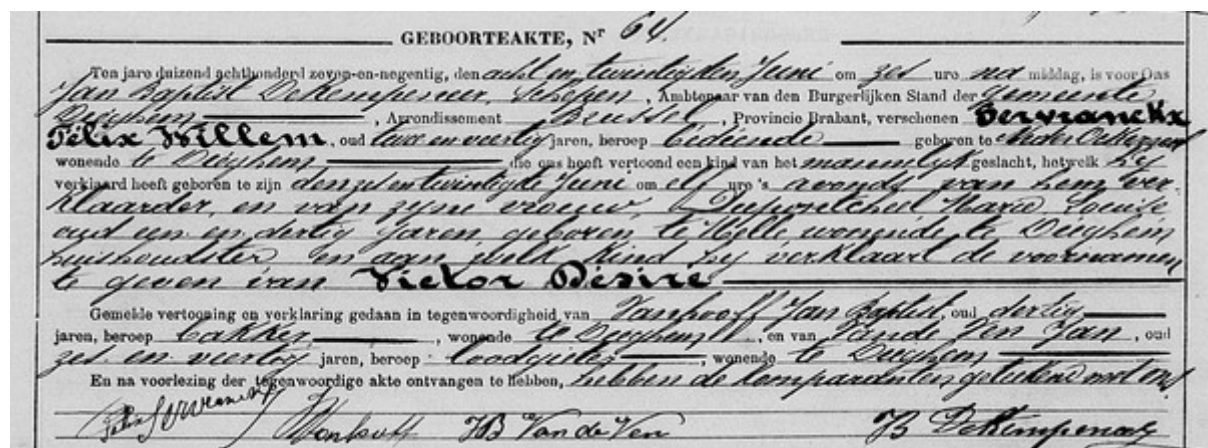 GEBOORTEAKTE, Nr 64.
Ten jare duizend achthonderd zeven-en-negentig, den acht en twintigsten Juni om zes ure na middag, is voor Ons
Jan Baptist Dekempeneer, Schepen, Ambtenaar van den Burgerlijken Stand der gemeente
Dieghem, Arrondissement Brussel, Provincie Brabant, verschenen Servranckx
Félix Willem, oud twee en veertig jaren, beroep bediende geboren te Neder Ockerzeel
wonende te Dieghem die ons heeft vertoond een kind van het mannelyk geslacht, hetwelk hy
verklaard heeft geboren te zijn den zes en twintigste Juni om elf ure 's avonds van hem ver-
klaarder, en van zyne vrouw, Marie Louise
oud een en dertig jaren, geboren te wonende te Dieghem
huishoudster en aan welk kind hy verklaart de voornamen
te geven van Victor Désiré
Gemelde vertooning en verklaring gedaan in tegenwoordigheid van Vanhooff Jan Baptist, oud dertig
jaren, beroep bakker, wonende te Dieghem, en van Vande Ven Jan, oud
zes en veertig jaren, beroep loodgieter, wonende te Dieghem
En na voorlezing der tegenwoordige akte ontvangen te hebben, hebben de komparanten geteekend met ons
Felix Servranckx Vanhooff JB Van de Ven JB Dekempeneer